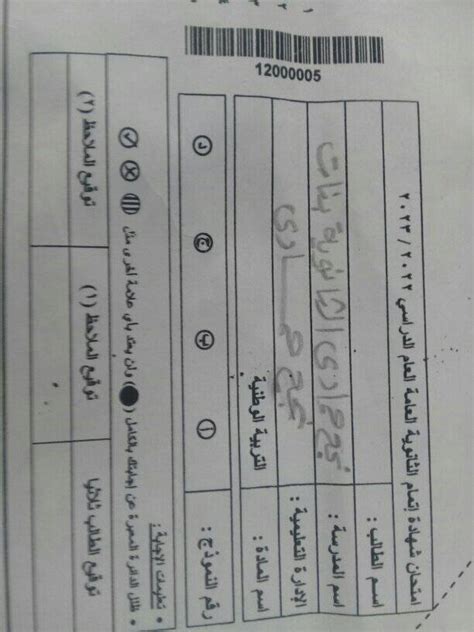 12000005
امتحان شهادة إتمام الثانوية العامة العام الدراسي ٢٠٢٢ / ٢٠٢٣
اسم الطالب :
اسم المدرسة : نجع حمادى الثانوية بنات
الإدارة التعليمية : نجع حمادى
اسم المادة : التربية الوطنية
رقم النموذج : أ ب ج د
• تعليمات الإجابة :
• ظلل الدائرة المعبرة عن إجابتك بالكامل (●) ولن يعتد بأي علامة أخرى مثل
توقيع الطالب ثلاثيا توقيع الملاحظ (١) توقيع الملاحظ (٢)